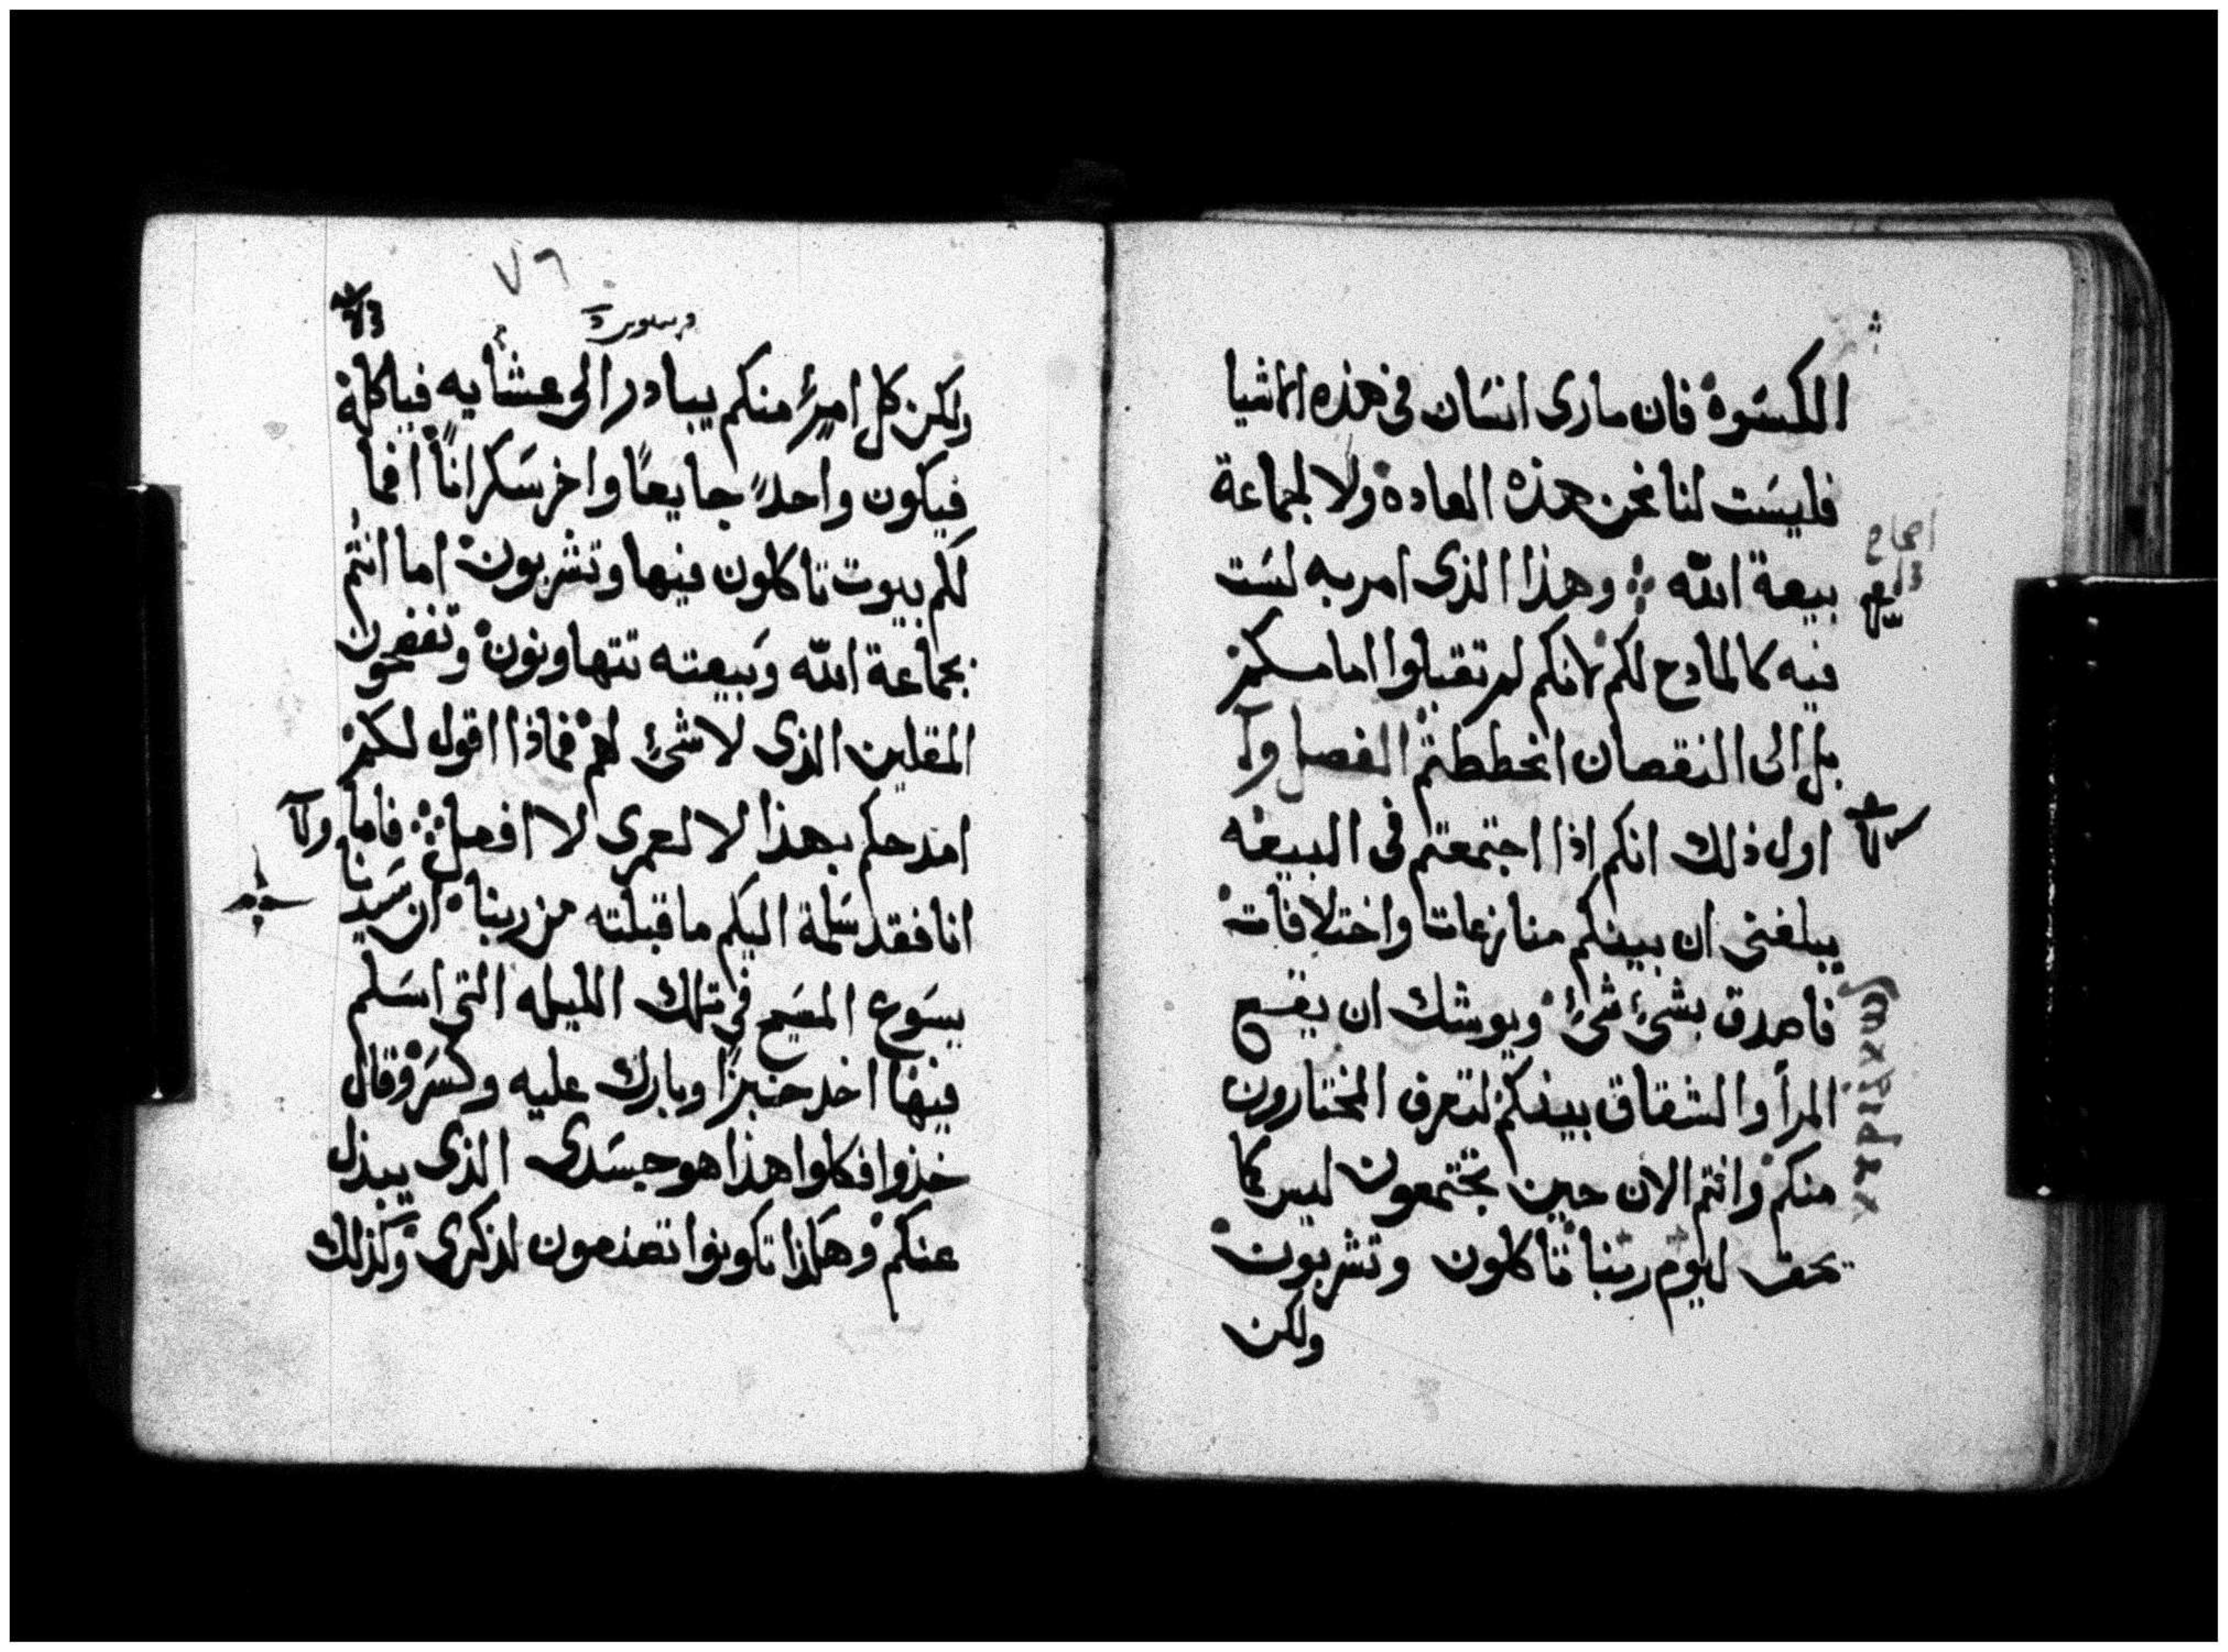 الكسوة فان مارى انسان فى هذه الاشيا
فليست لنا نحن هذه العادة ولا لجماعة
بيعة الله وهذا الذى امر به لست
فيه كالمادح لكم لانكم لم تقبلوا امامكم
بل الى النقصان انحططتم الفصل
اول ذلك انكم اذا اجتمعتم فى البيعه
يبلغنى ان بينكم منازعات واختلافات
فاصدق بشئ شئ ويوشك ان يقع
المرأ والشقاق بينكم لتعرف المختارون
منكم وانتم الان حين تجتمعون ليس كما
يحق ليوم ربنا تاكلون وتشربون
ولكن
٧٦
ولكن كل امرئ منكم يبادر الى عشأيه فياكله
فيكون واحدً جايعًا واخر سكرانًا افما
لكم بيوت تاكلون فيها وتشربون اما انتم
بجماعة الله وبيعته تتهاونون وتفضحون
المقلين الذى لا شئ لهم فماذا اقول لكم
امدحكم بهذا لا لعمرى لا افعل فاما
انا فقد سلمة اليكم ما قبلته من ربنا ان سيدنا
يسوع المسيح فى تلك الليله التى اسلم
فيها اخد خبزًا وبارك عليه وكسر وقال
خذوا فكلوا هذا هو جسدى الذى يبذل
عنكم وهكذا تكونوا تصنعون لذكرى وكذلك